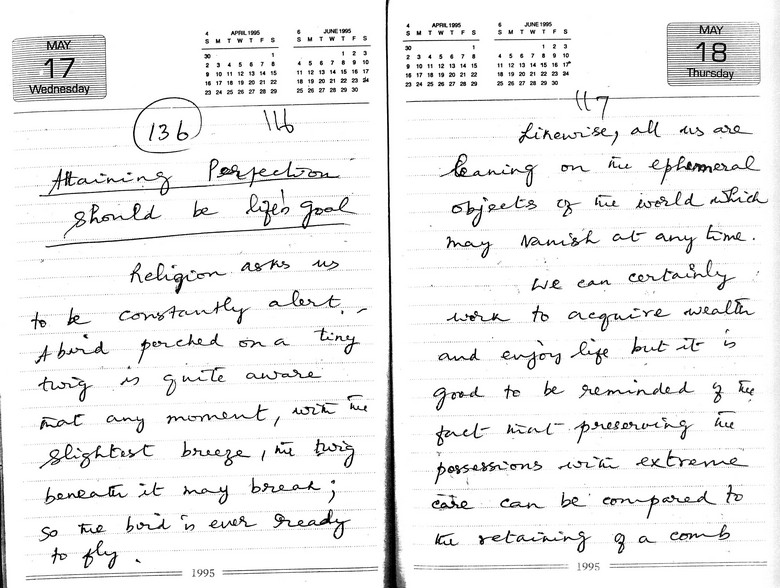 MAY
17
Wednesday
4 APRIL 1995
S M T W T F S
30 1
2 3 4 5 6 7 8
9 10 11 12 13 14 15
16 17 18 19 20 21 22
23 24 25 26 27 28 29
6 JUNE 1995
S M T W T F S
1 2 3
4 5 6 7 8 9 10
11 12 13 14 15 16 17
18 19 20 21 22 23 24
25 26 27 28 29 30
136 116
Attaining Perfection
should be life's goal
Religion asks us
to be constantly alert.
A bird perched on a tiny
twig is quite aware
that any moment, with the
slightest breeze, the twig
beneath it may break;
so the bird is ever ready
to fly.
1995
4 APRIL 1995
S M T W T F S
30 1
2 3 4 5 6 7 8
9 10 11 12 13 14 15
16 17 18 19 20 21 22
23 24 25 26 27 28 29
6 JUNE 1995
S M T W T F S
1 2 3
4 5 6 7 8 9 10
11 12 13 14 15 16 17
18 19 20 21 22 23 24
25 26 27 28 29 30
MAY
18
Thursday
117
Likewise, all us are
leaning on the ephemeral
objects of the world which
may vanish at any time.
We can certainly
work to acquire wealth
and enjoy life but it is
good to be reminded of the
fact that preserving the
possessions with extreme
care can be compared to
the retaining of a comb
1995